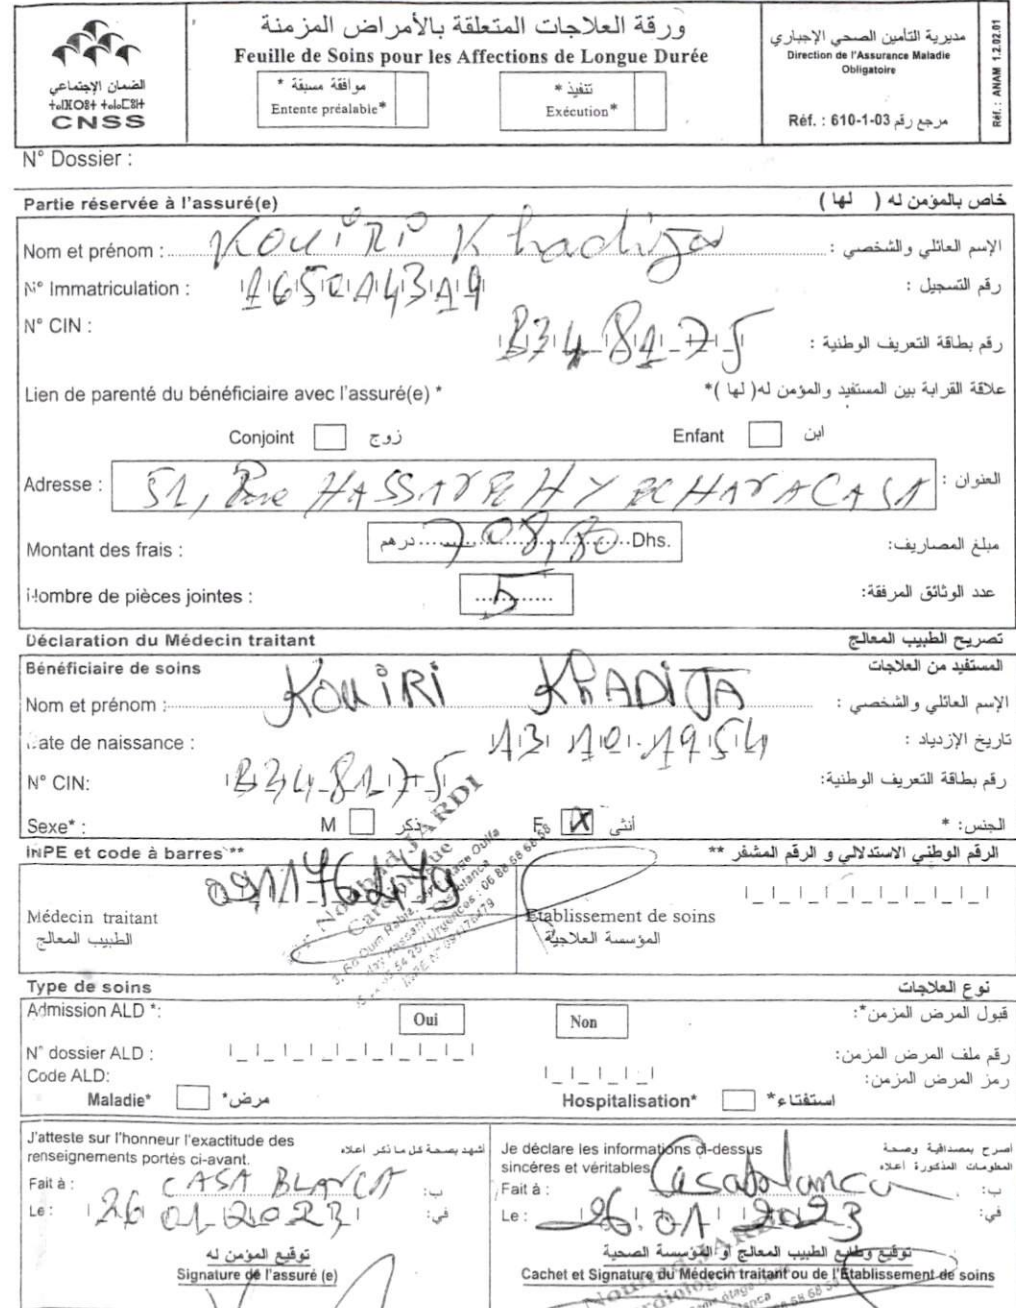 ورقة العلاجات المتعلقة بالأمراض المزمنة
Feuille de Soins pour les Affections de Longue Durée
الضمان الإجتماعي
CNSS
موافقة مسبقة *
Entente préalable*
تنفيذ *
Exécution*
مديرية التأمين الصحي الإجباري
Direction de l'Assurance Maladie
Obligatoire
Réf. : 610-1-03 مرجع رقم
Réf. : ANAM 1.2.02.01
N° Dossier :
Partie réservée à l'assuré(e) خاص بالمؤمن له ( لها )
Nom et prénom : KOUIRI Khadija الإسم العائلي والشخصي :
N° Immatriculation : 165014319 رقم التسجيل :
N° CIN : B348175 رقم بطاقة التعريف الوطنية :
Lien de parenté du bénéficiaire avec l'assuré(e) * علاقة القرابة بين المستفيد والمؤمن له( لها )*
Conjoint زوج Enfant ابن
Adresse : 51, Rue CASA العنوان :
Montant des frais : درهم 708,80 Dhs. مبلغ المصاريف:
Nombre de pièces jointes : 5 عدد الوثائق المرفقة:
Déclaration du Médecin traitant تصريح الطبيب المعالج
Bénéficiaire de soins المستفيد من العلاجات
Nom et prénom : KOUIRI KHADIJA الإسم العائلي والشخصي :
Date de naissance : 13 10 1954 تاريخ الإزدياد :
N° CIN: B348175 رقم بطاقة التعريف الوطنية:
Sexe* : M ذكر F X أنثى الجنس: *
INPE et code à barres** الرقم الوطني الاستدلالي و الرقم المشفر **
091176479
Médecin traitant
الطبيب المعالج
Etablissement de soins
المؤسسة العلاجية
Type de soins نوع العلاجات
Admission ALD *: Oui Non قبول المرض المزمن*:
N° dossier ALD : رقم ملف المرض المزمن:
Code ALD: رمز المرض المزمن:
Maladie* مرض* Hospitalisation* استشفاء*
J'atteste sur l'honneur l'exactitude des
renseignements portés ci-avant.
أشهد بصحة كل ما ذكر أعلاه
Fait à : CASA BLANCA ب:
Le : 26 01 2023 في:
توقيع المؤمن له
Signature de l'assuré (e)
Je déclare les informations ci-dessus
sincéres et véritables
أصرح بمصداقية وصحة
المعلومات المذكورة أعلاه
Fait à : Casablanca ب:
Le : 26 01 2023 في:
توقيع وطابع الطبيب المعالج أو المؤسسة الصحية
Cachet et Signature du Médecin traitant ou de l'Etablissement de soins